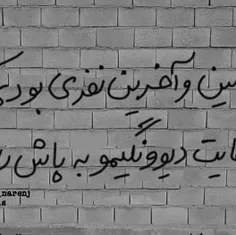 ین و آخرین نفری بود ک
ایت دیوونگیمو به پاش
narenj